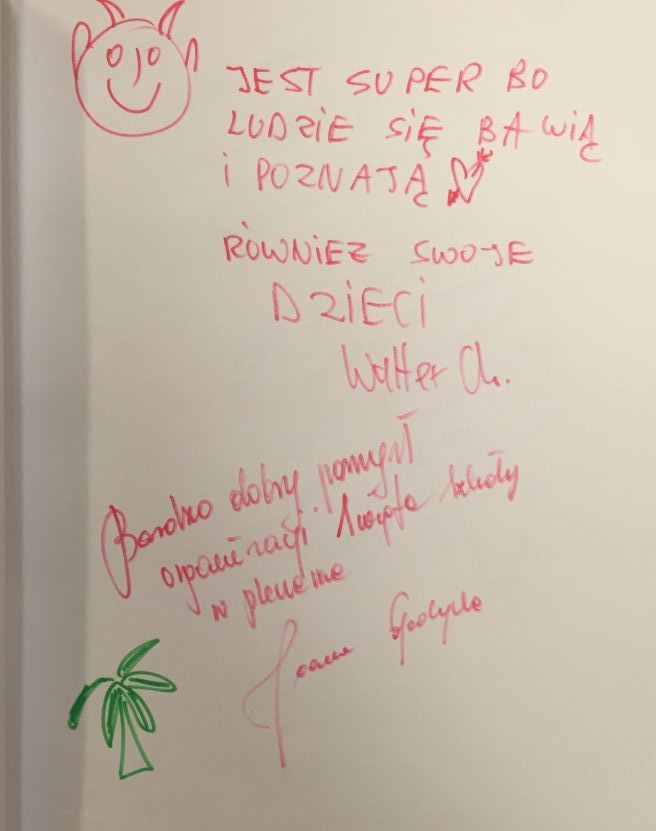 JEST SUPER BO
LUDZIE SIĘ BAWIĄ
i POZNAJĄ
RÓWNIEZ SWOJE
DZIECI
Walter Ch.
Bardzo dobry pomysł
organizacji Święta Szkoły
w plenerze
Joanna